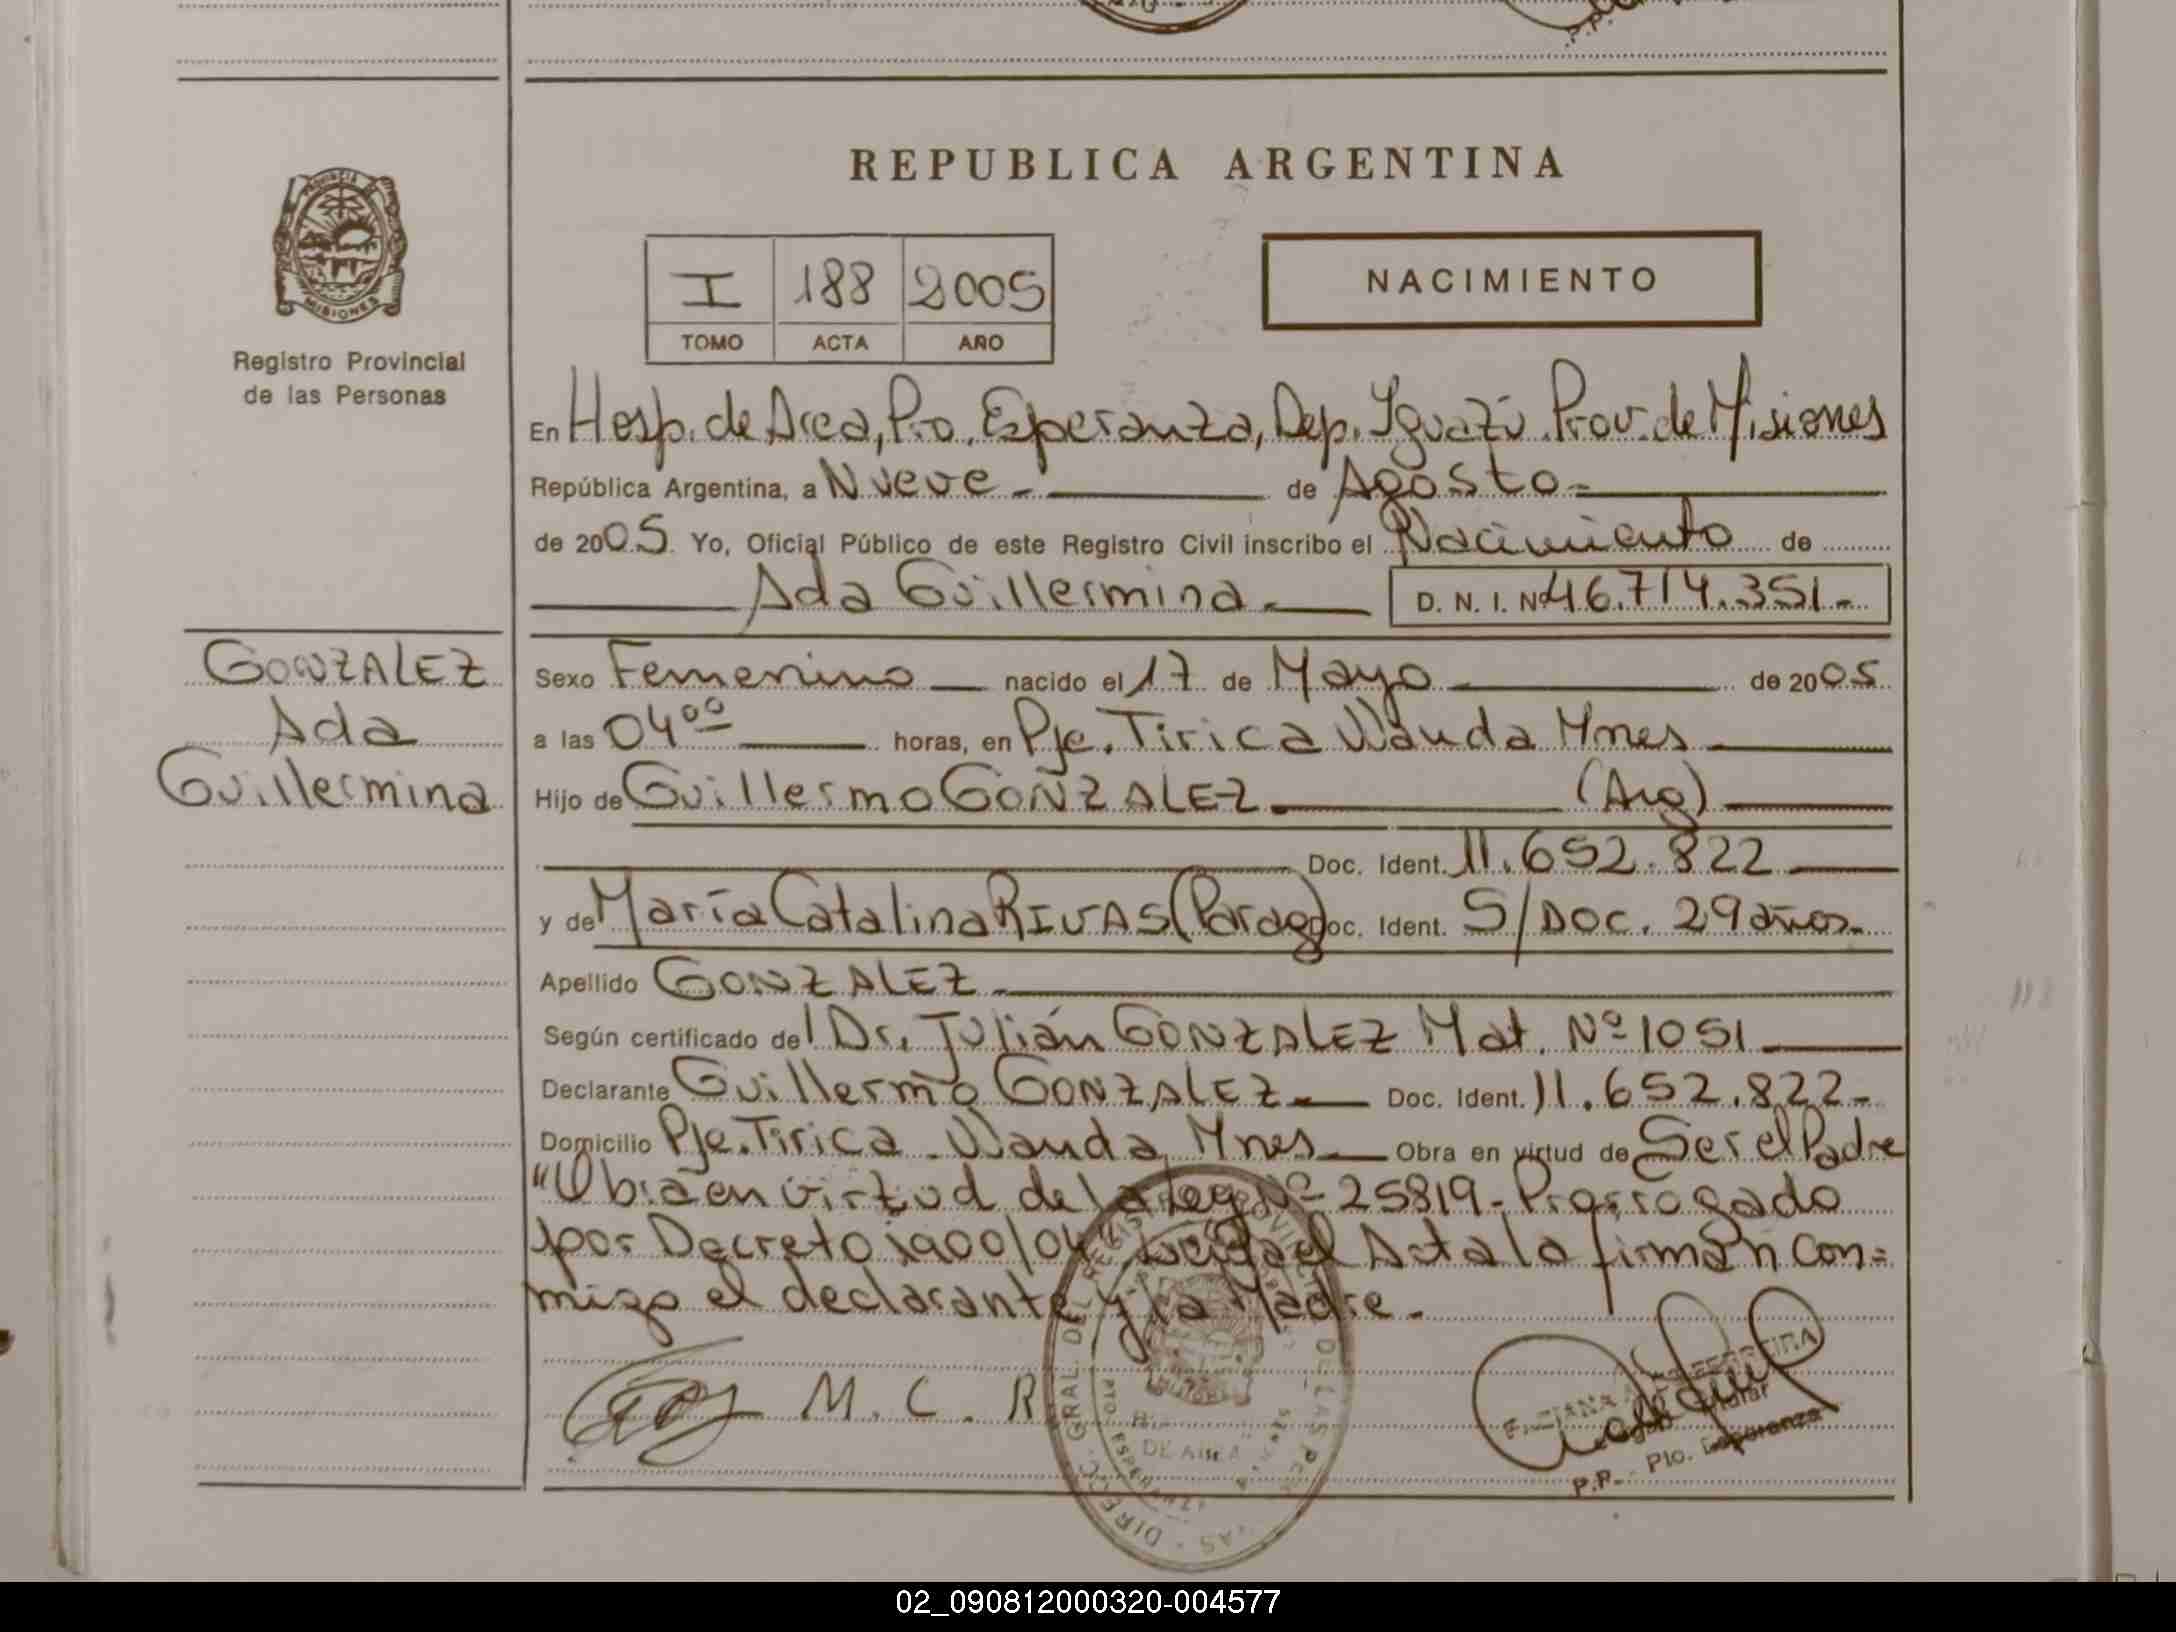 REPUBLICA ARGENTINA
PROVINCIA DE
MISIONES
Registro Provincial
de las Personas
I 188 2005
TOMO ACTA AÑO
NACIMIENTO
En Hosp. de Area, Pto. Esperanza, Dep. Iguazú. Prov. de Misiones
República Argentina, a Nueve - de Agosto -
de 2005. Yo, Oficial Público de este Registro Civil inscribo el Nacimiento de
Ada Guillermina - D. N. I. Nº 46.714.351-
GONZALEZ
Ada
Guillermina
Sexo Femenino nacido el 17 de Mayo de 2005
a las 04⁰⁰ horas, en Pje. Tirica Wanda Mnes -
Hijo de Guillermo GONZALEZ - (Arg)
Doc. Ident. 11.652.822
y de María Catalina RIVAS (Parag) Doc. Ident. S/DOC. 29 años-
Apellido GONZALEZ -
Según certificado del Dr. Julián GONZALEZ Mat. Nº 1051
Declarante Guillermo GONZALEZ - Doc. Ident. 11.652.822-
Domicilio Pje. Tirica - Wanda, Mnes - Obra en virtud de Ser el Padre
"Obra en virtud de la Ley Nº 25819 - Prorrogado
por Decreto 1900/04" el Acta la firman con=
migo el declarante y la Madre.
M. C. R
FERREIRA
Titular
P.P. Pto. Esperanza
02_090812000320-004577